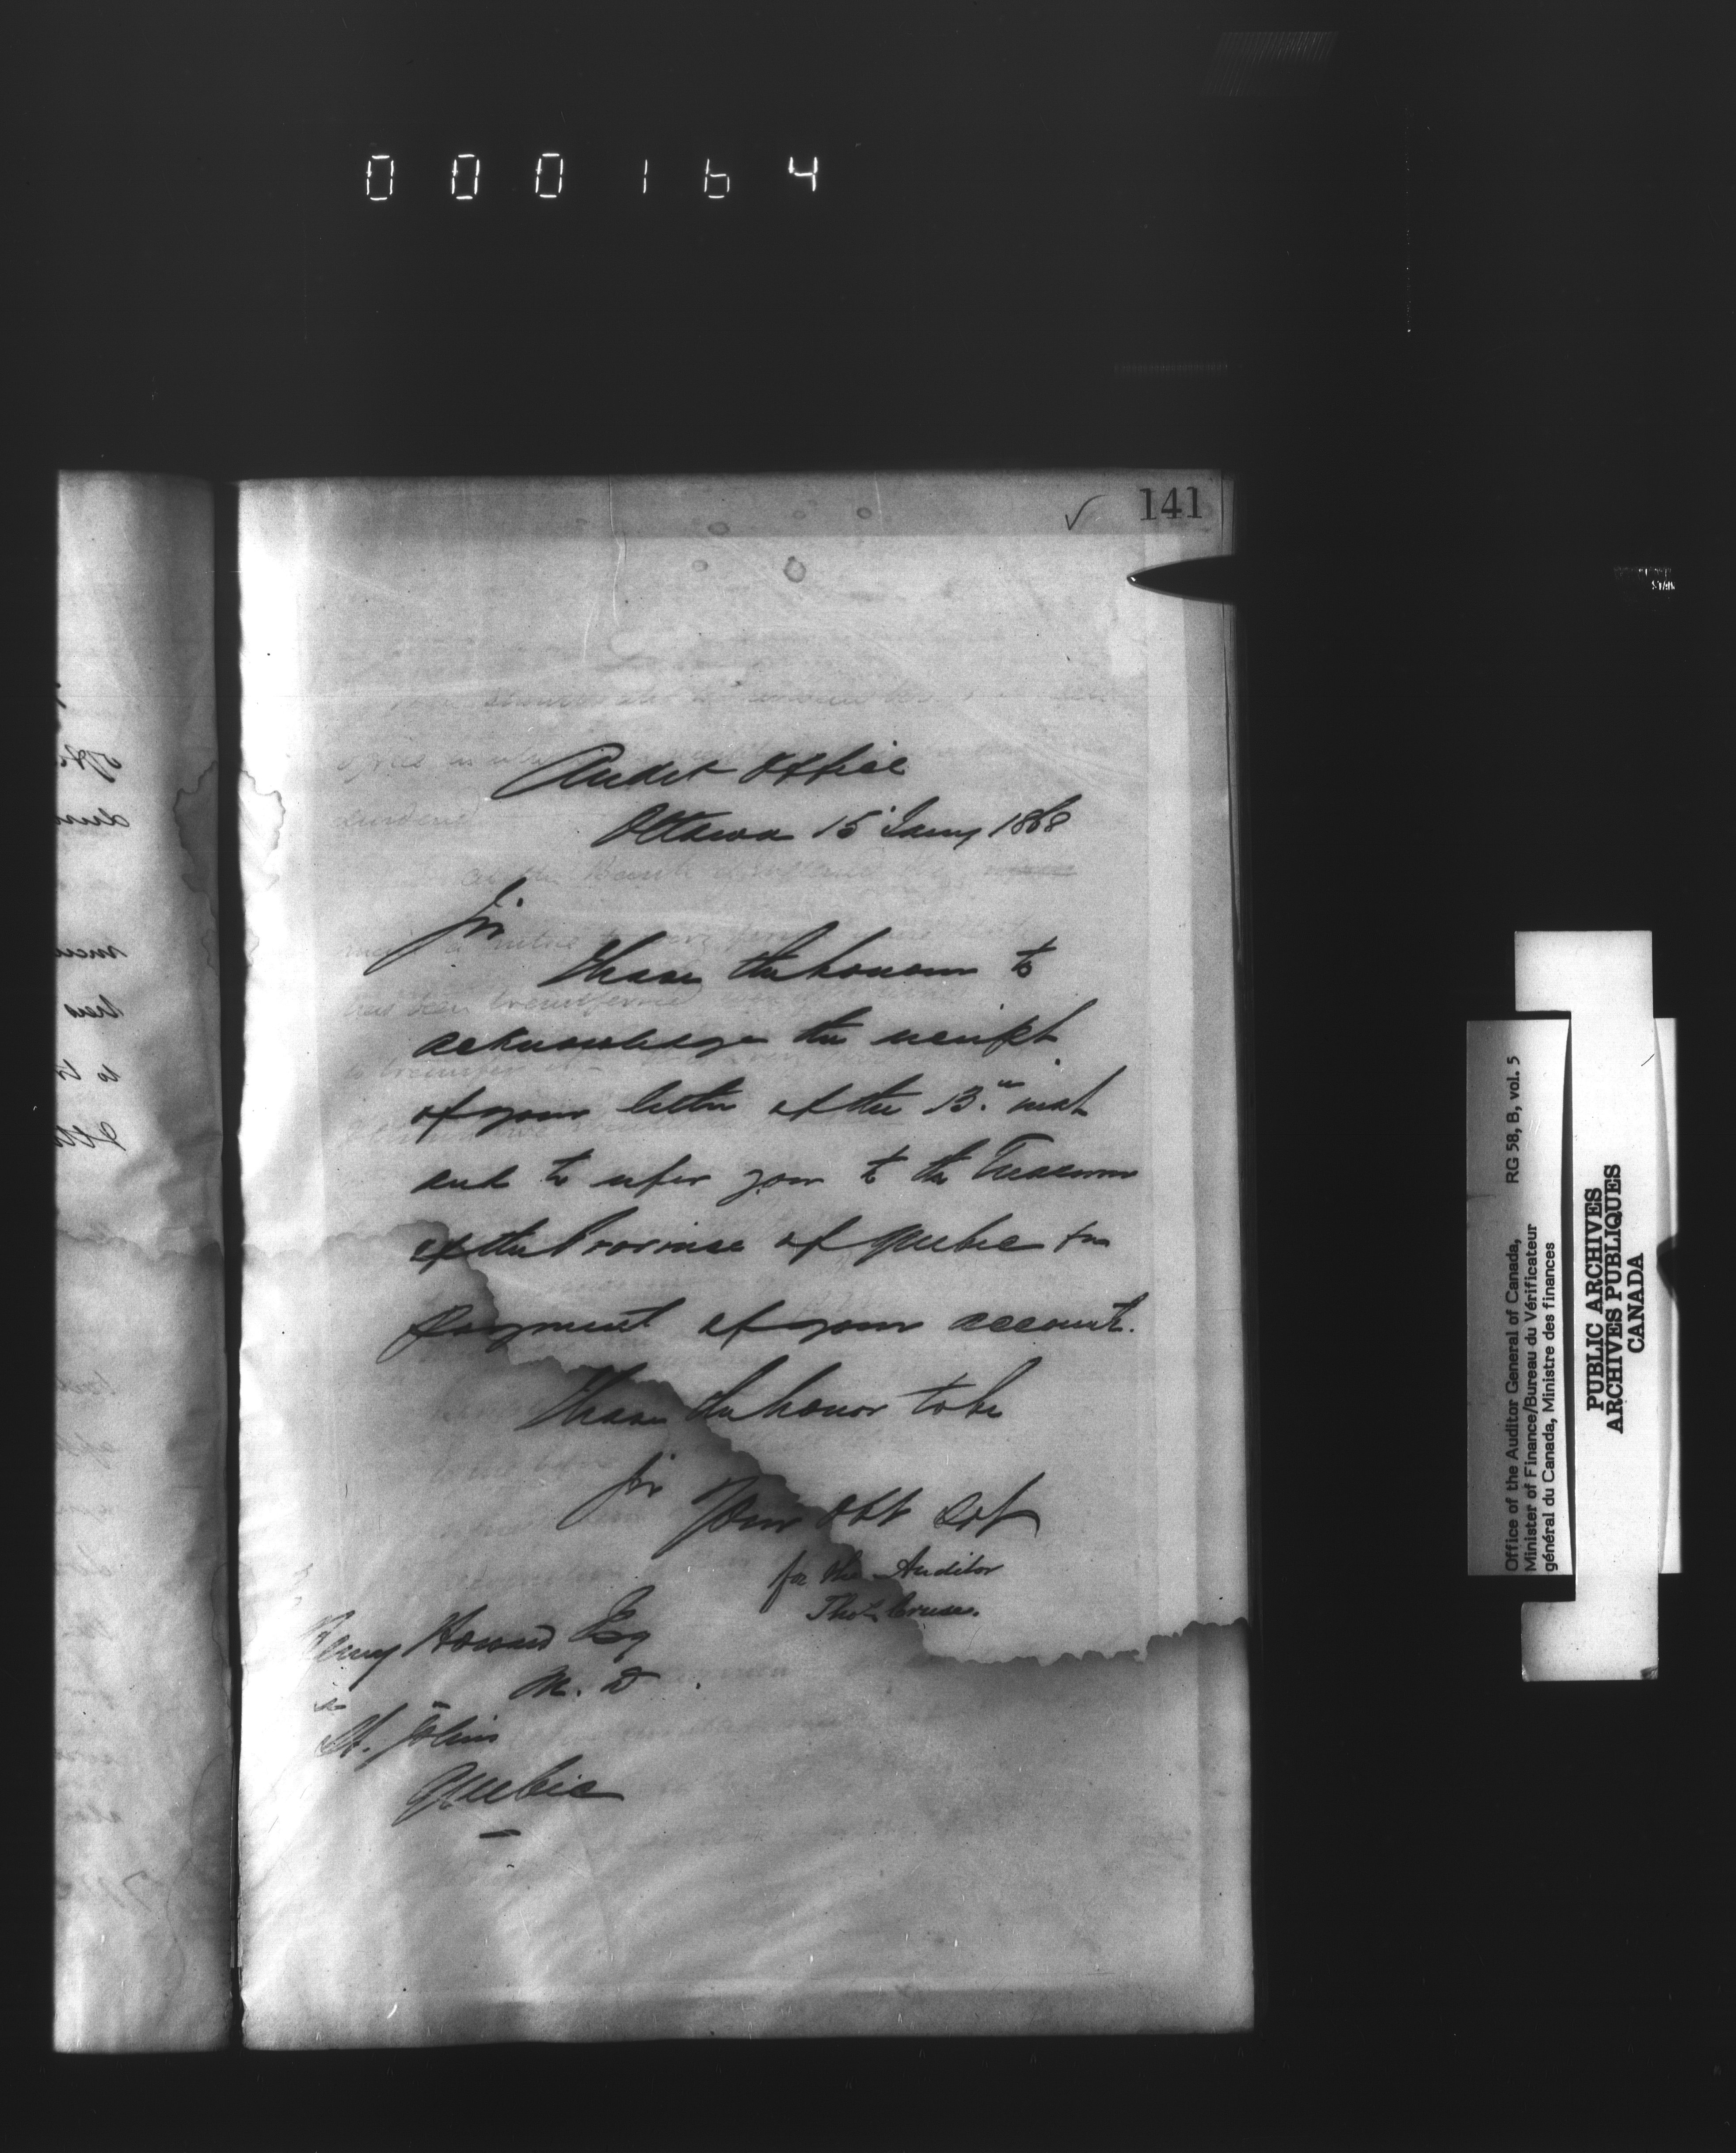 000164
141
Audit Office
Ottawa 15 Jany 1868
Sir
I have the honour to
acknowledge the receipt
of your letter of the 13th inst
and to refer you to the Treasurer
of the Province of Quebec for
payment of your account.
I have the honor to be
Sir
Your obt Svt
for the Auditor
Thos Cruse.
Henry Howard Esq
M. D.
St. Johns
Quebec
Office of the Auditor General of Canada, RG 58, B, vol. 5
Minister of Finance/Bureau du Vérificateur
général du Canada, Ministre des finances
PUBLIC ARCHIVES
ARCHIVES PUBLIQUES
CANADA